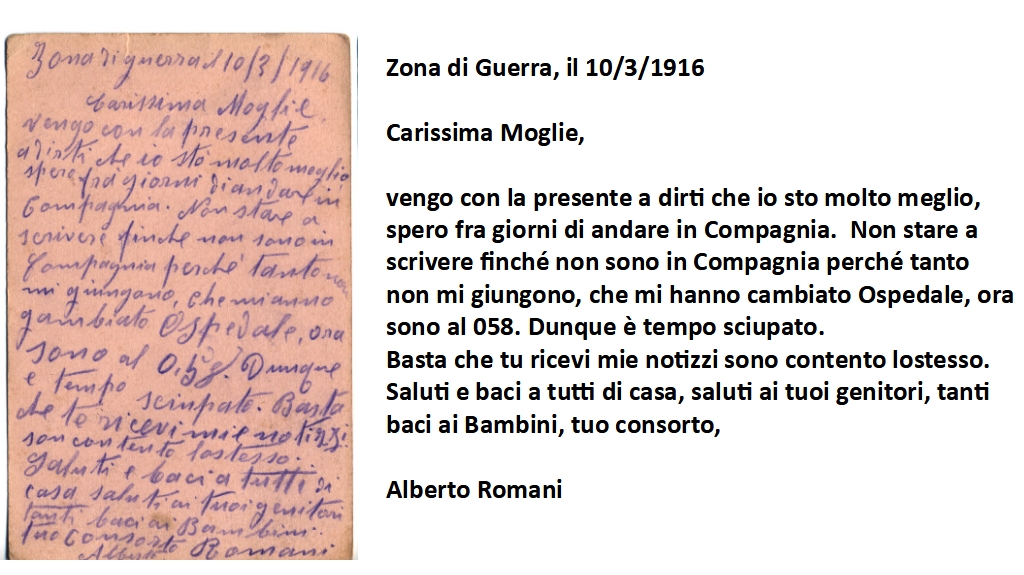 Zona di guerra il 10/3/1916
Carissima Moglie,
vengo con la presente
a dirti che io sto molto meglio
spero fra giorni di andare in
Compagnia. Non stare a
scrivere finche non sono in
Compagnia perché tanto non
mi giungono, che mi anno
gambiato Ospedale, ora
sono al 0,58. Dunque
e tempo sciupato. Basta
che te ricevi mie notizzi
son contento lostesso.
Saluti e baci a tutti di
casa saluti ai tuoi genitori
tanti baci ai Bambini.
tuo Consorto
Alberto Romani
Zona di Guerra, il 10/3/1916
Carissima Moglie,
vengo con la presente a dirti che io sto molto meglio,
spero fra giorni di andare in Compagnia. Non stare a
scrivere finché non sono in Compagnia perché tanto
non mi giungono, che mi hanno cambiato Ospedale, ora
sono al 058. Dunque è tempo sciupato.
Basta che tu ricevi mie notizzi sono contento lostesso.
Saluti e baci a tutti di casa, saluti ai tuoi genitori, tanti
baci ai Bambini, tuo consorto,
Alberto Romani